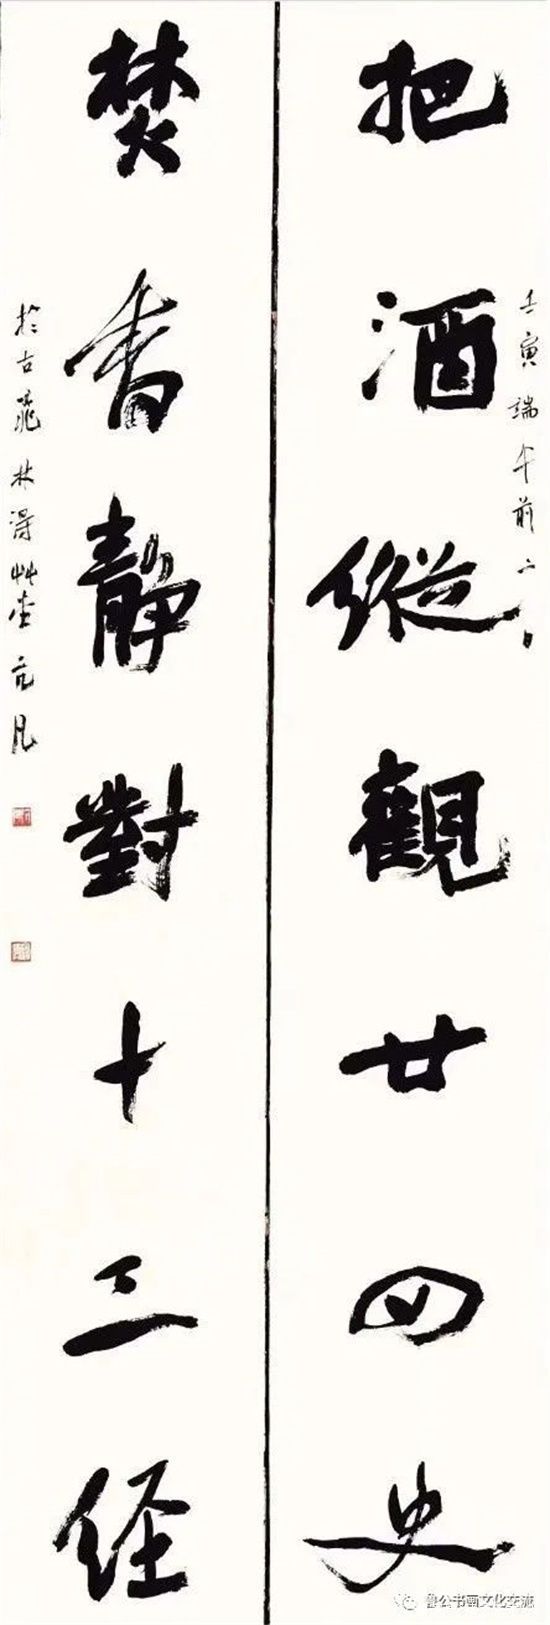 把酒縱觀廿四史
壬寅端午前二日
焚香靜對十三经
於古
林得艸堂 亢凡
鲁公书画文化交流